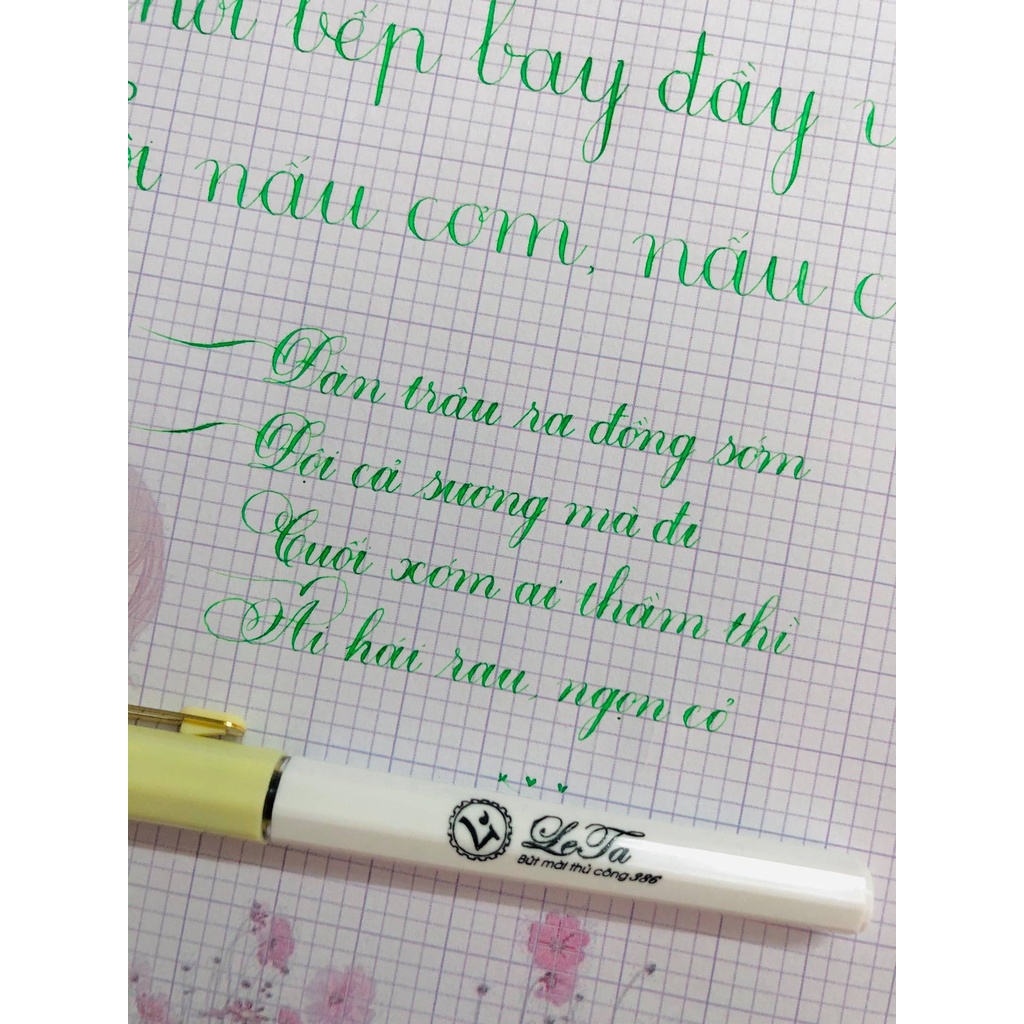 bếp bay đầy
nấu cơm, nấu
Đàn trâu ra đồng sớm
Đội cả sương mà đi
Cuối xóm ai thầm thì
Ai hái rau, ngọn cỏ
LeTa
Bút mài thủ công 386